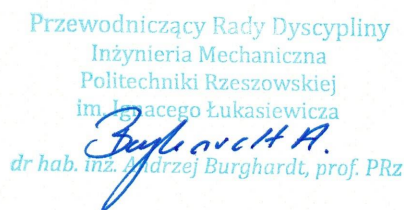 Przewodniczący Rady Dyscypliny
Inżynieria Mechaniczna
Politechniki Rzeszowskiej
im. Ignacego Łukasiewicza
Burghardt A.
dr hab. inż. Andrzej Burghardt, prof. PRz